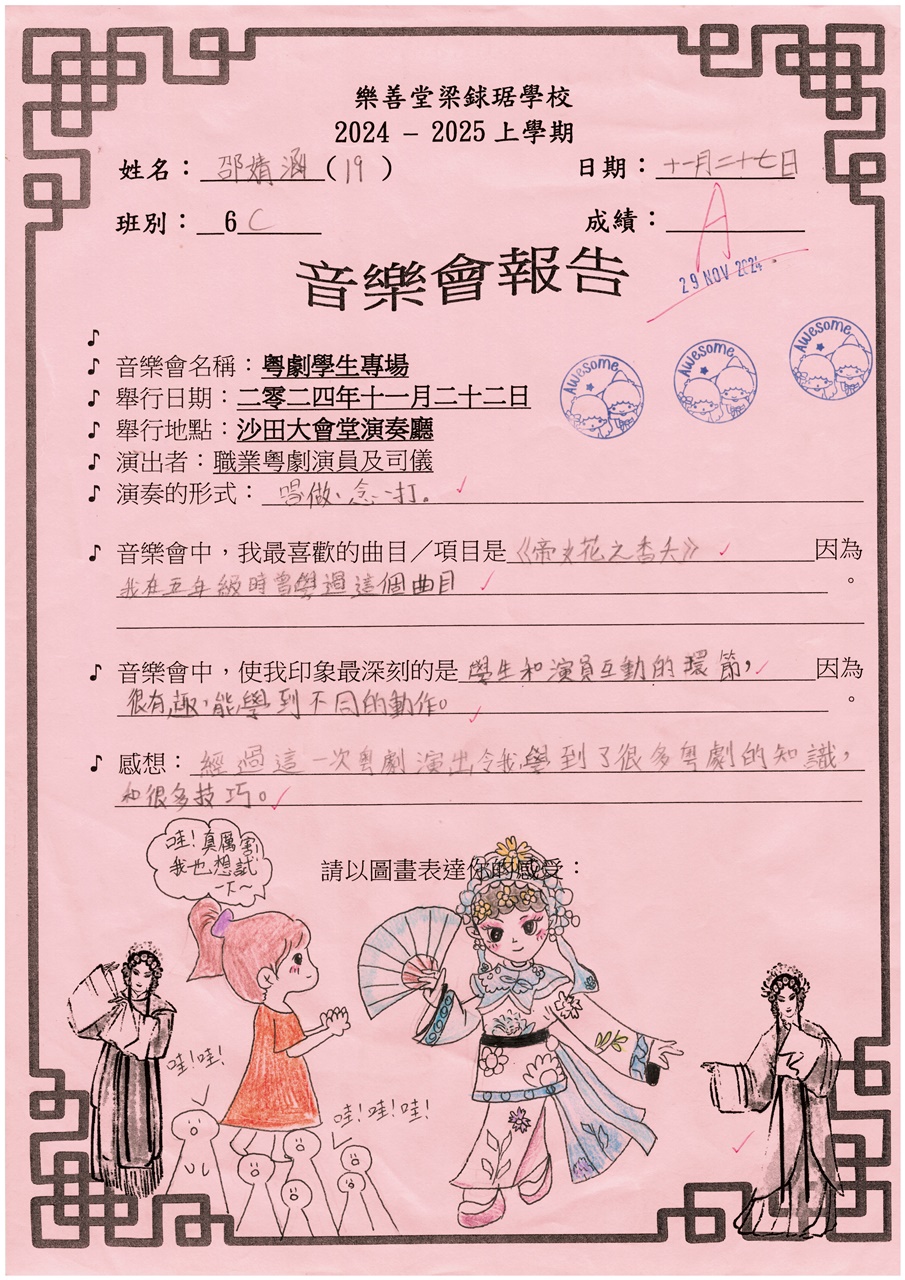 樂善堂梁銶琚學校
2024 – 2025 上學期
姓名：邵婧涵(19)
日期：十一月二十七日
班別：6C
成績：A
29 NOV 2024
音樂會報告
♪
♪ 音樂會名稱：粵劇學生專場
♪ 舉行日期：二零二四年十一月二十二日
♪ 舉行地點：沙田大會堂演奏廳
♪ 演出者：職業粵劇演員及司儀
♪ 演奏的形式：唱、做、念、打。
Awesome
Awesome
Awesome
♪ 音樂會中，我最喜歡的曲目／項目是《帝女花之香夭》因為
我在五年級時曾學過這個曲目。
♪ 音樂會中，使我印象最深刻的是學生和演員互動的環節，因為
很有趣，能學到不同的動作。。
♪ 感想：經過這一次粵劇演出令我學到了很多粵劇的知識，
和很多技巧。
請以圖畫表達你的感受：
哇!真厲害
我也想試
一下~
哇!哇!
哇!哇!哇!